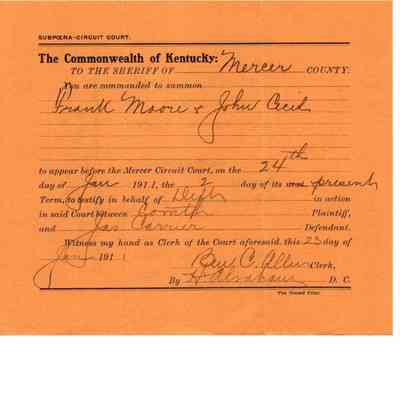 SUBPŒNA-CIRCUIT COURT.
The Commonwealth of Kentucky:
TO THE SHERIFF OF Mercer COUNTY.
You are commanded to summon
Frank Moore & John Cecil
to appear before the Mercer Circuit Court, on the 24th
day of Jan 1911, the 2 day of its next present
Term, to testify in behalf of Deft in action
in said Court between Comth Plaintiff,
and Jas Carrier Defendant.
Witness my hand as Clerk of the Court aforesaid, this 23 day of
Jan 1911
Ben C. Allin Clerk,
By D. C.